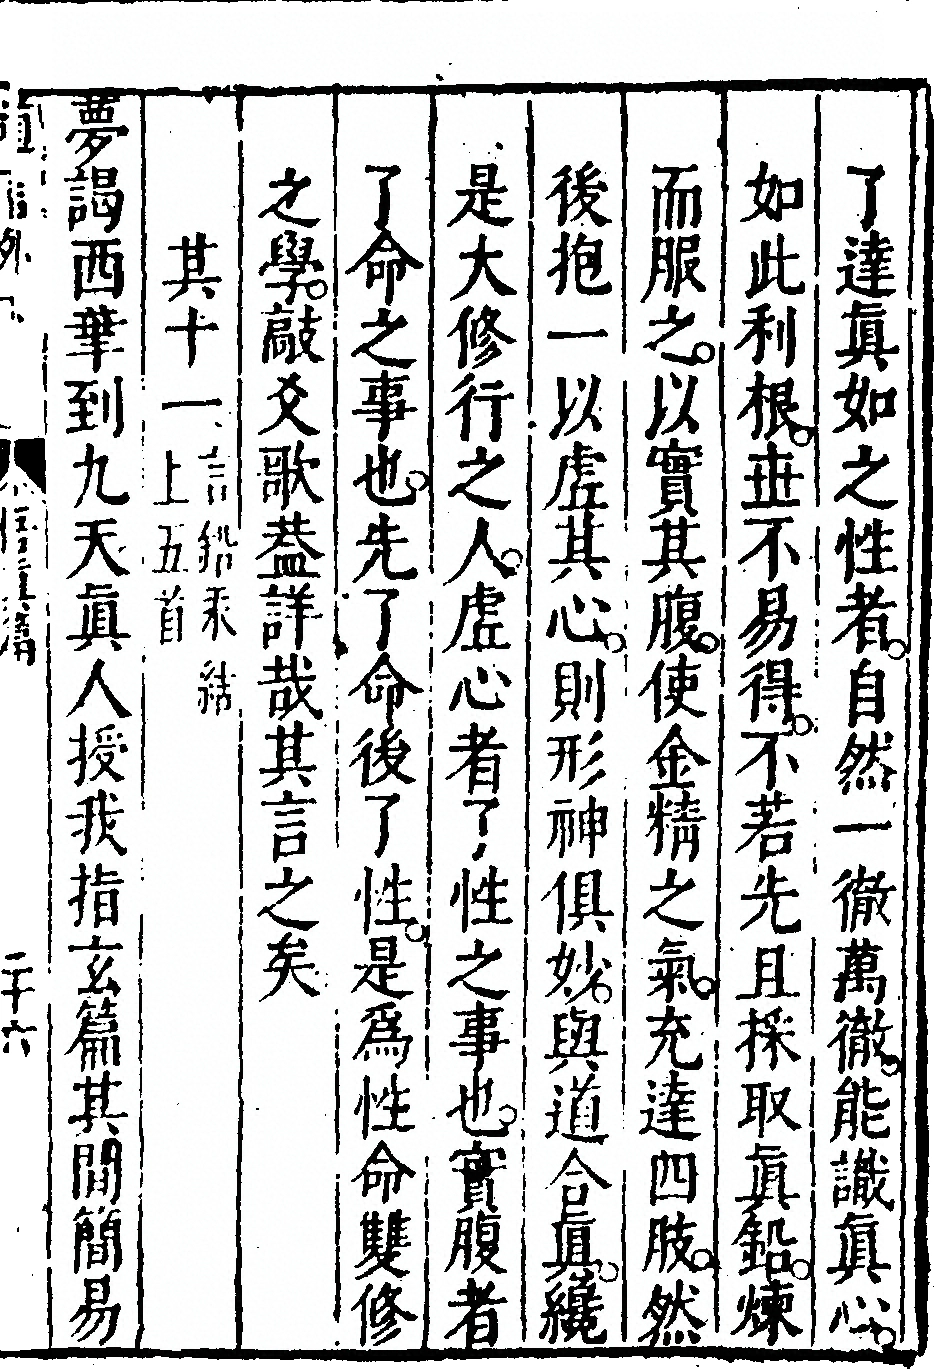 了達眞如之性者自然一徹萬徹能識眞心
如此利根世不易得不若先且採取眞鉛煉
而服之以實其腹使金精之氣充達四肢然
後抱一以虛其心則形神俱妙與道合眞纔
是大修行之人虛心者了性之事也實腹者
了命之事也先了命後了性是爲性命雙修
之學敲爻歌葢詳哉其言之矣
其十一言鉛汞結上五首
夢謁西華到九天眞人授我指玄篇其間簡易
二十六